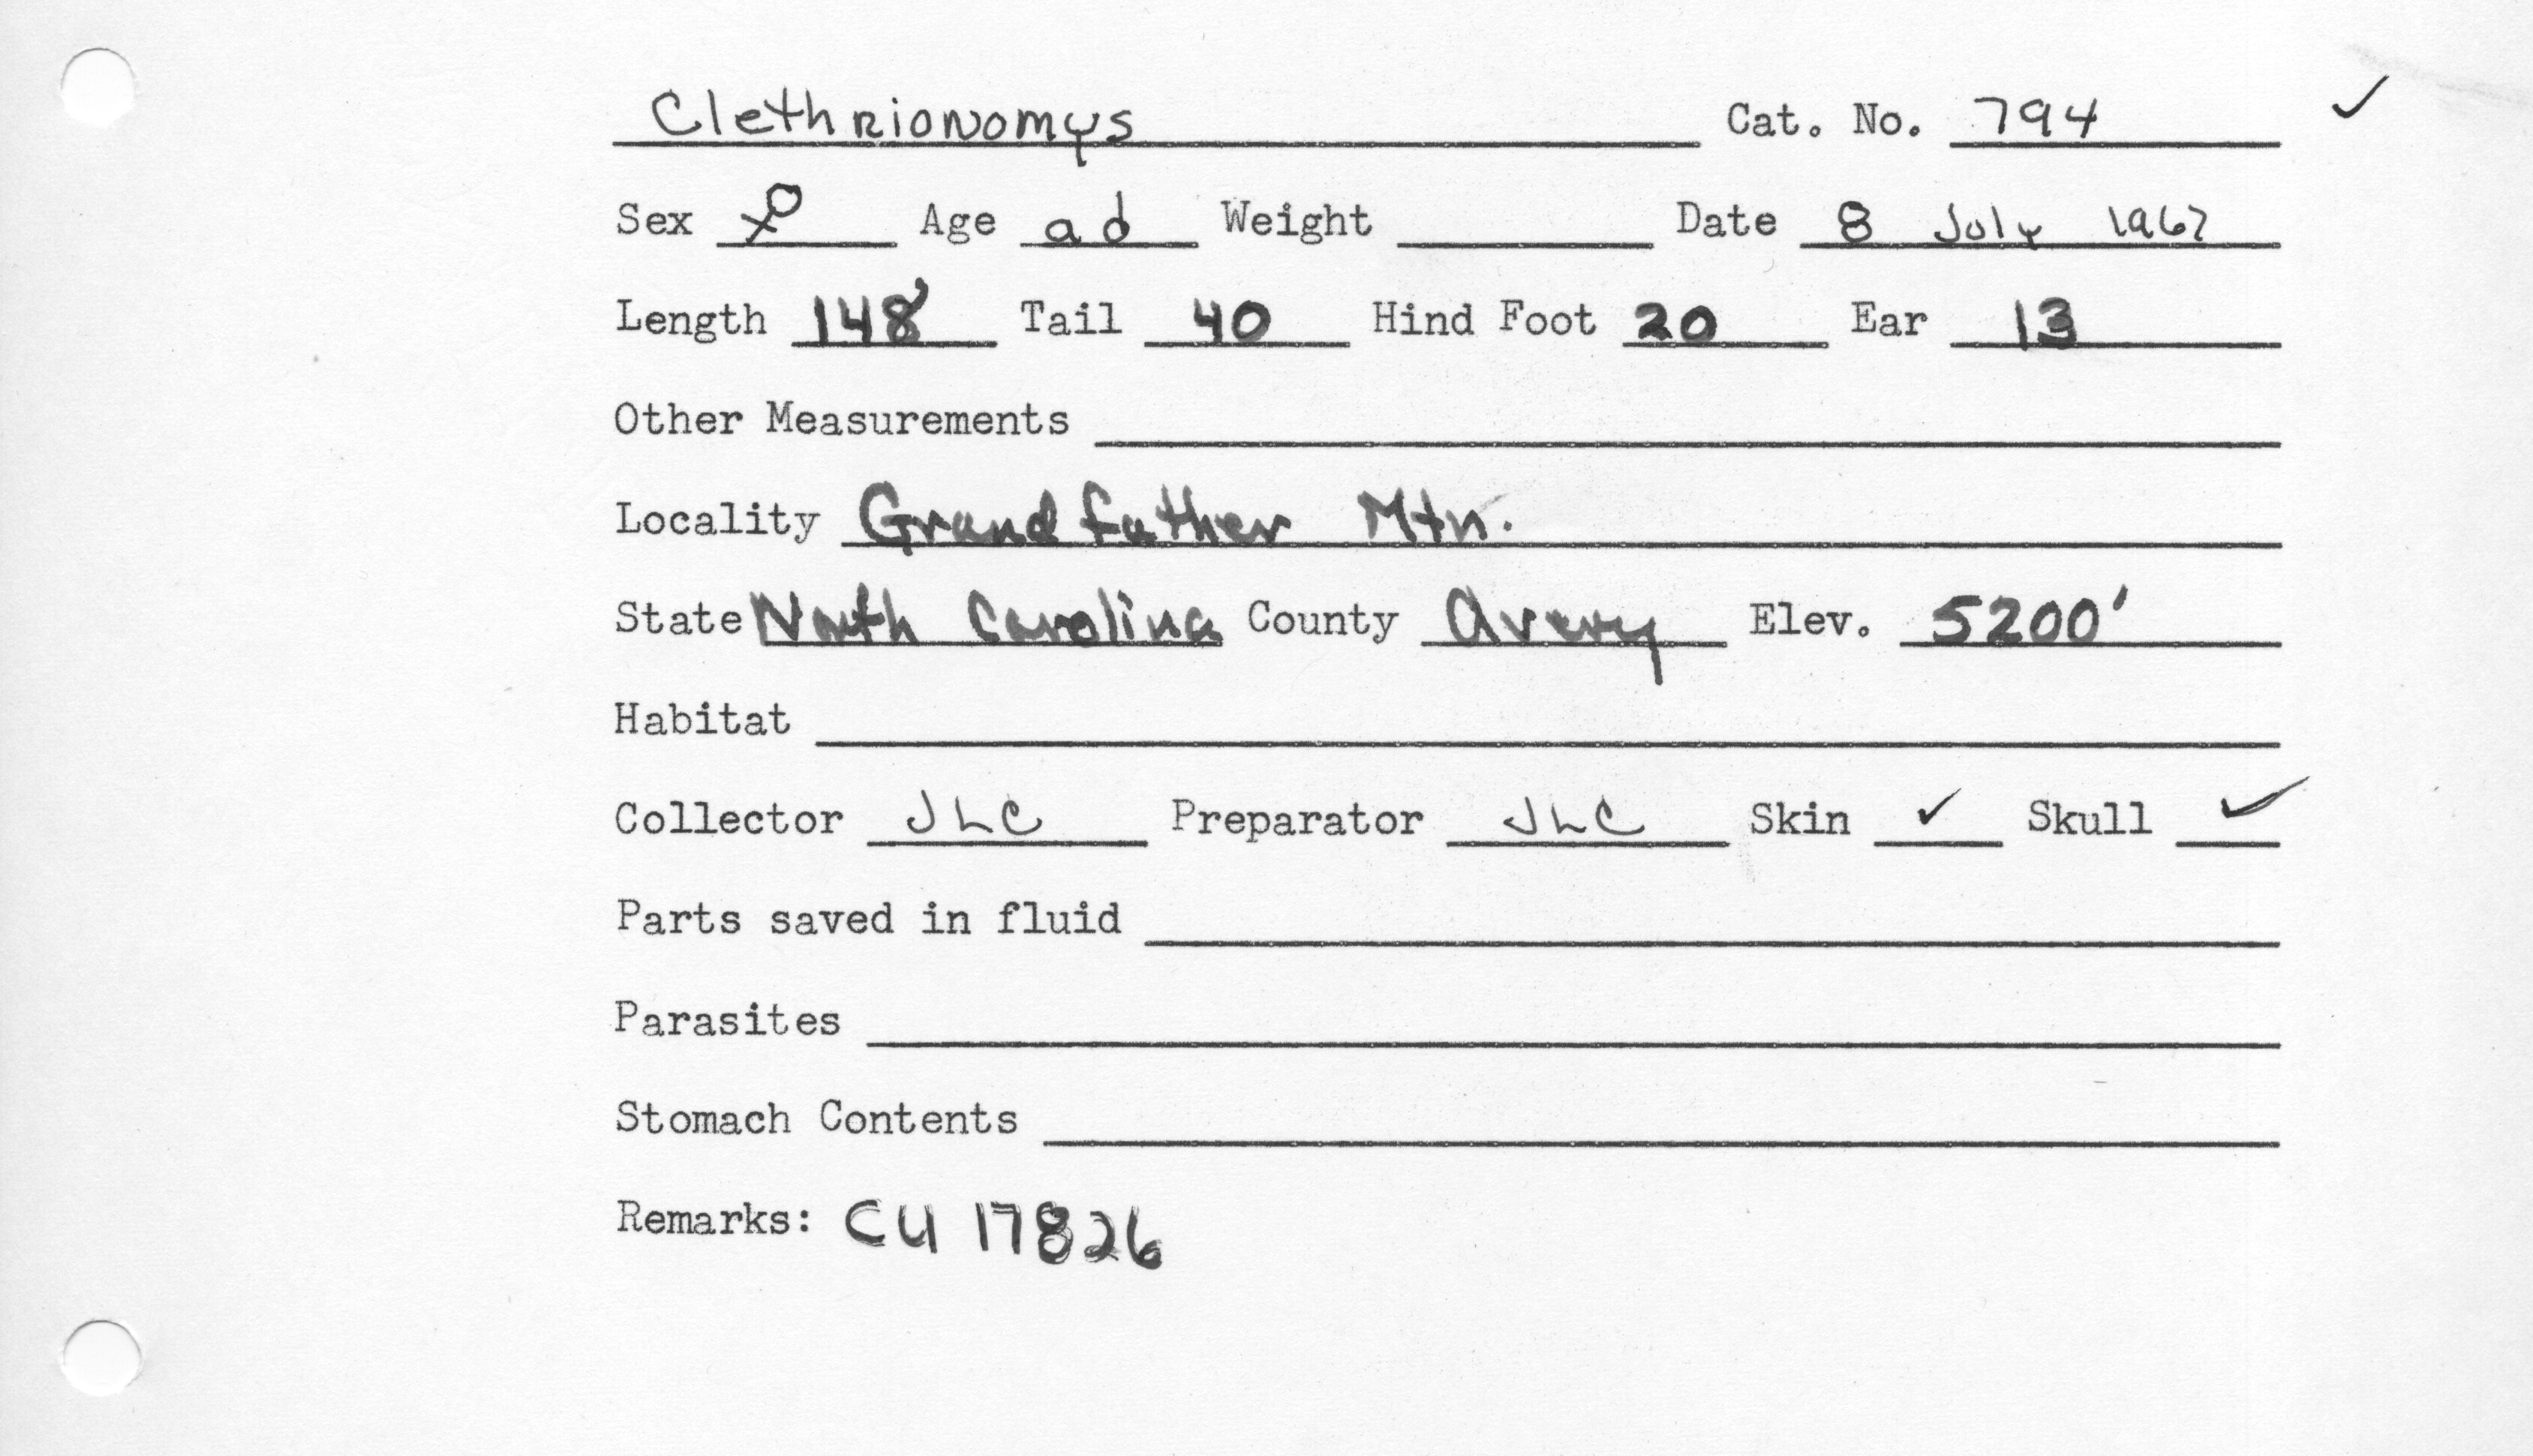 Clethrionomys Cat. No. 794 ✓
Sex ♀ Age ad Weight Date 8 July 1967
Length 148 Tail 40 Hind Foot 20 Ear 13
Other Measurements
Locality Grandfather Mtn.
State North Carolina County Avery Elev. 5200'
Habitat
Collector JLC Preparator JLC Skin ✓ Skull ✓
Parts saved in fluid
Parasites
Stomach Contents
Remarks: CU 17826